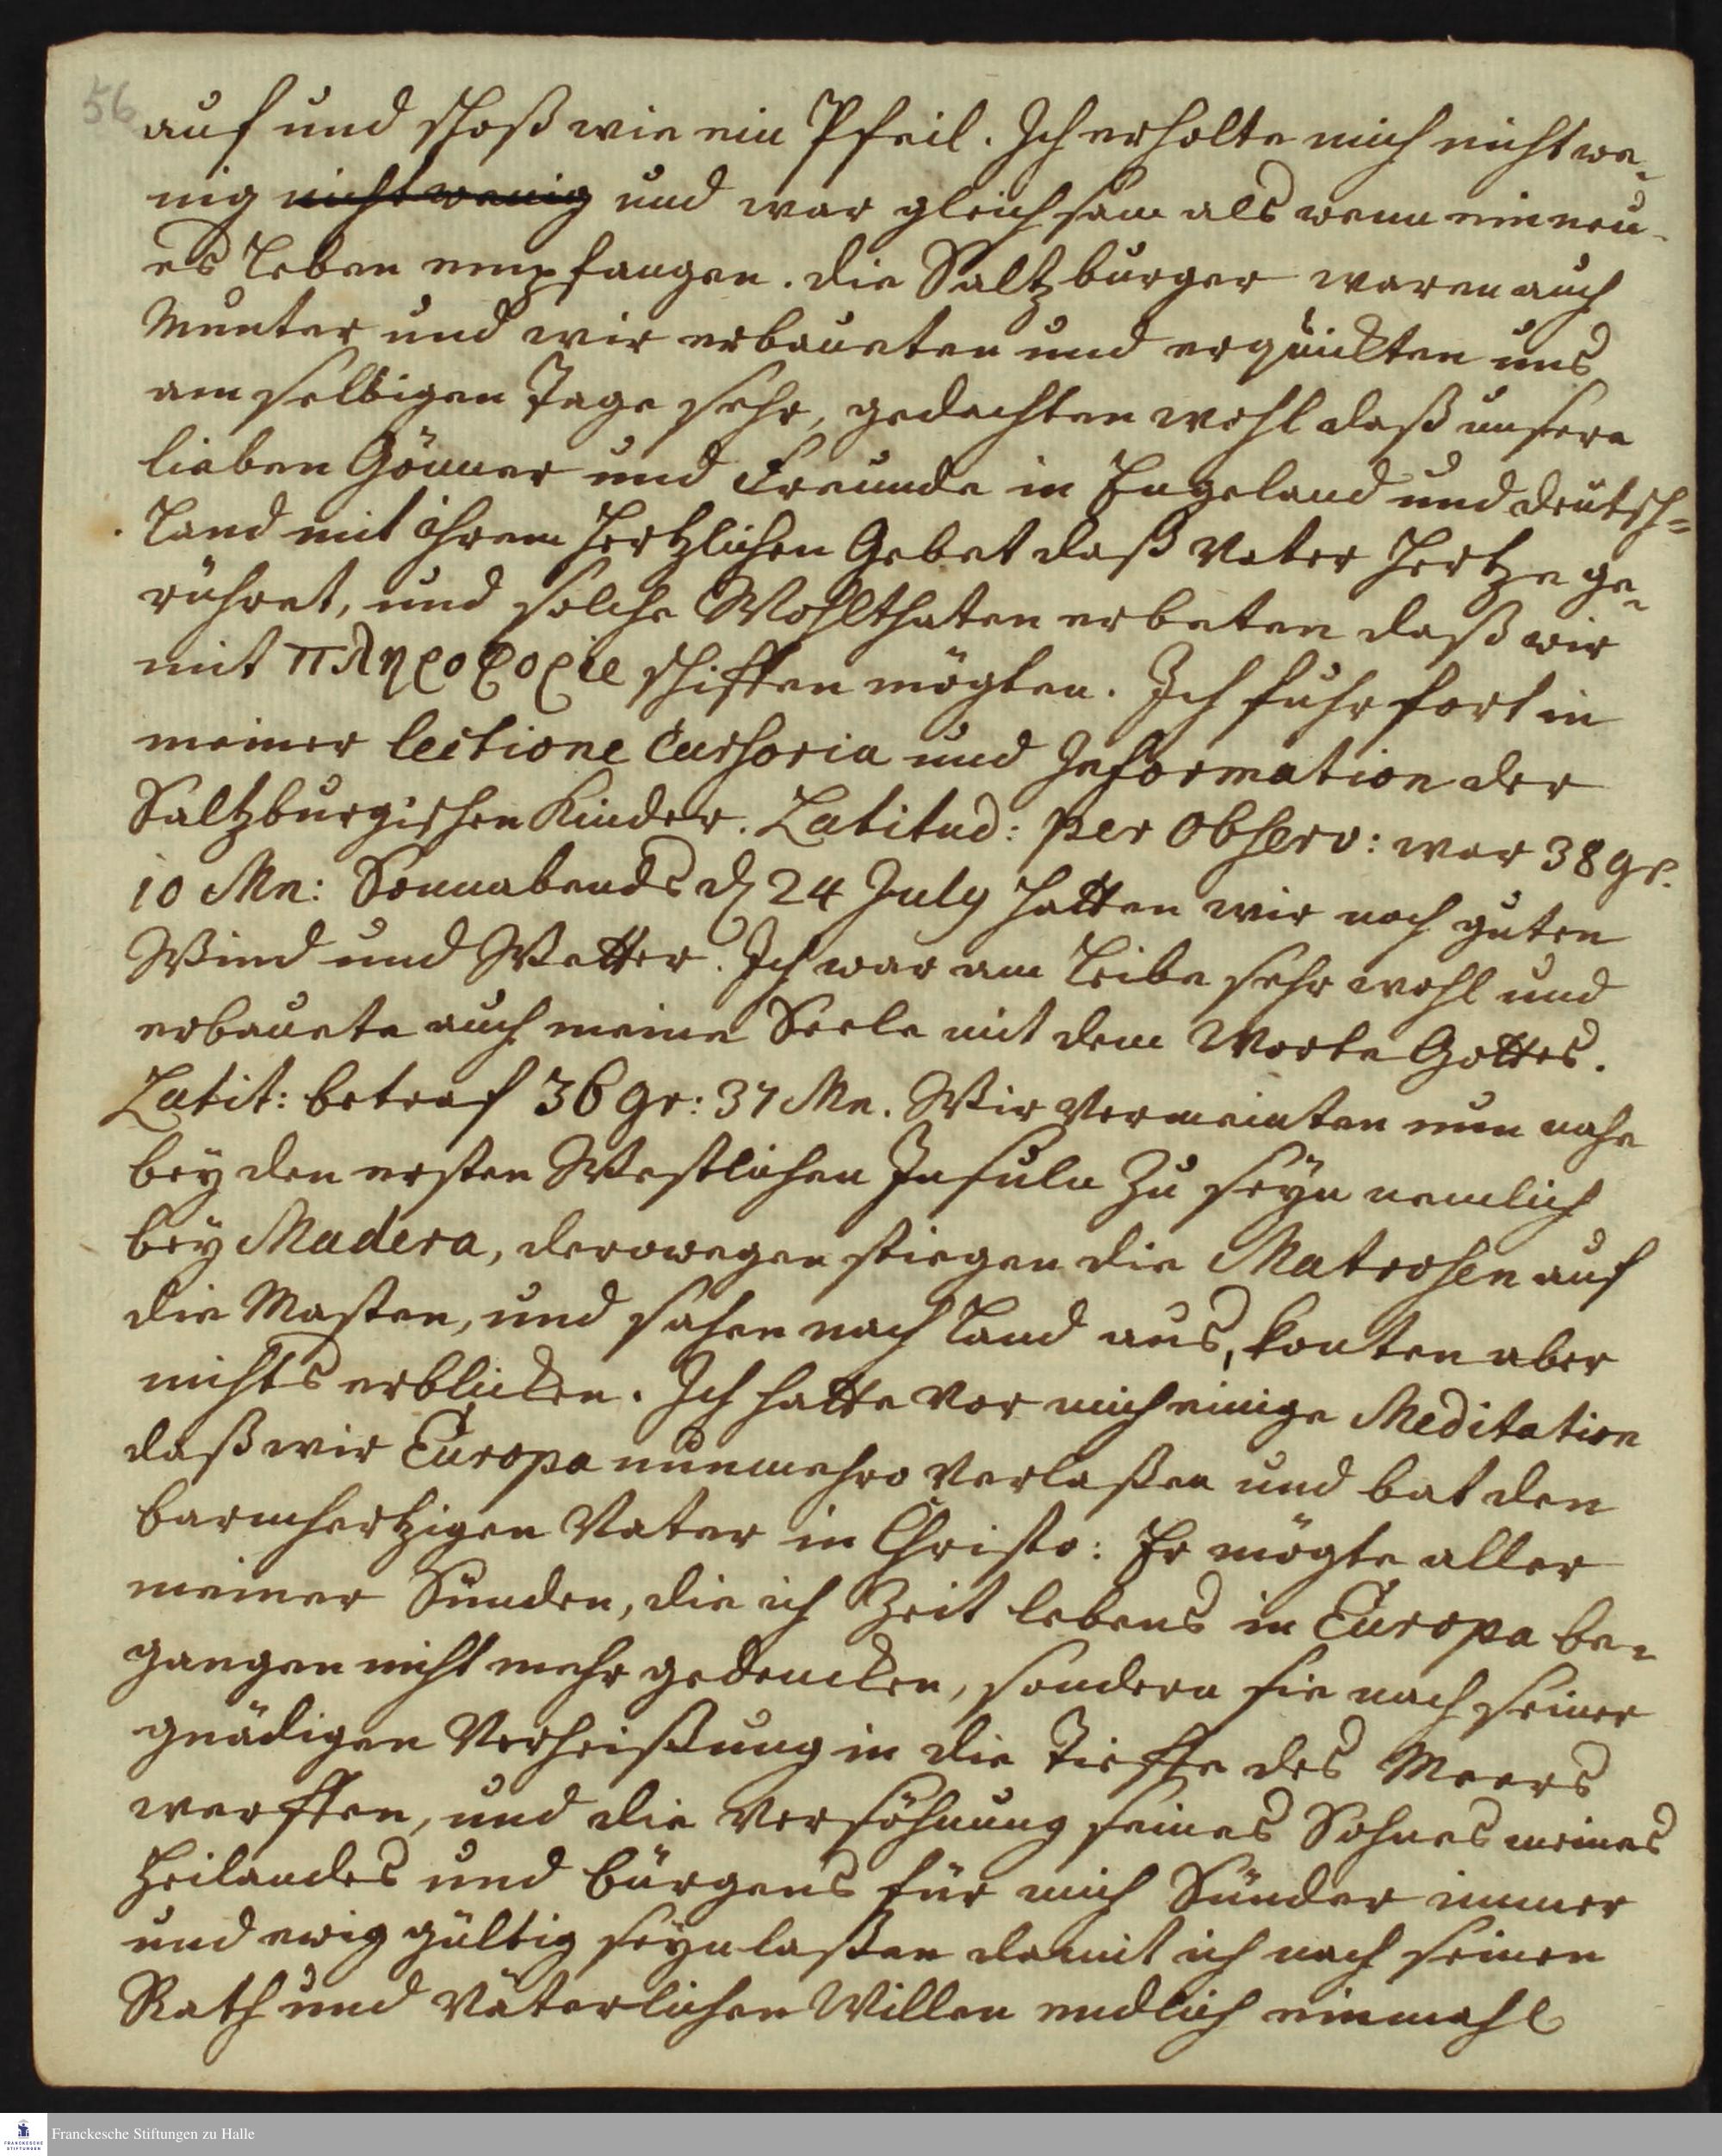 56
auf und schoß wie ein Pfeil. Ich erholte mich nicht we-
nig nicht wenig und war gleichsam als wenn ein neu-
es Leben empfangen. die Saltzburger waren auch
Munter und wir erbaueten und erquickten uns
am selbigen Tage sehr, gedachten wohl daß unsere
lieben Gönner und Freunde in Engeland und deutsch=
Land mit ihrem Hertzlichen Gebet daß Vater Hertze ge-
rühret, und solche Wohlthaten erbeten daß wir
mit πληροφοριε schiffen mögten. Ich fuhr fort in
meiner lectione Cursoria und Information der
Saltzburgischen Kinder. Latitud: per Observ: war 38 gr.
10 Mn: Sonnabends d 24 July hatten wir noch guten
Wind und Wetter. Ich war am Leibe sehr wohl und
erbauete auch meine Seele mit dem Worte Gottes.
Latit: betraf 36 gr: 37 Mn. Wir vermeinten nun nahe
bey den ersten Westlichen Insuln zu seyn nemlich
bey Madera, derowegen stiegen die Matrosen auf
die Masten, und sahen nach Land aus, konten aber
nichts erblicken. Ich hatte vor mich einige Meditation
daß wir Europa nunmehro verlaßen und bat den
barmhertzigen Vater in Christo: Er mögte aller
meiner Sünden, die ich Zeit lebens in Europa be-
gangen nicht mehr gedencken, sondern sie nach seiner
gnädigen Verheißung in die Tieffe des Meers
werffen, und die Versöhnung seines Sohnes meines
Heilandes und bürgens für mich Sünder immer
und ewig gültig seyn laßen damit ich nach seinen
Rath und Väterlichen Willen endlich einmahl
Franckesche Stiftungen zu Halle